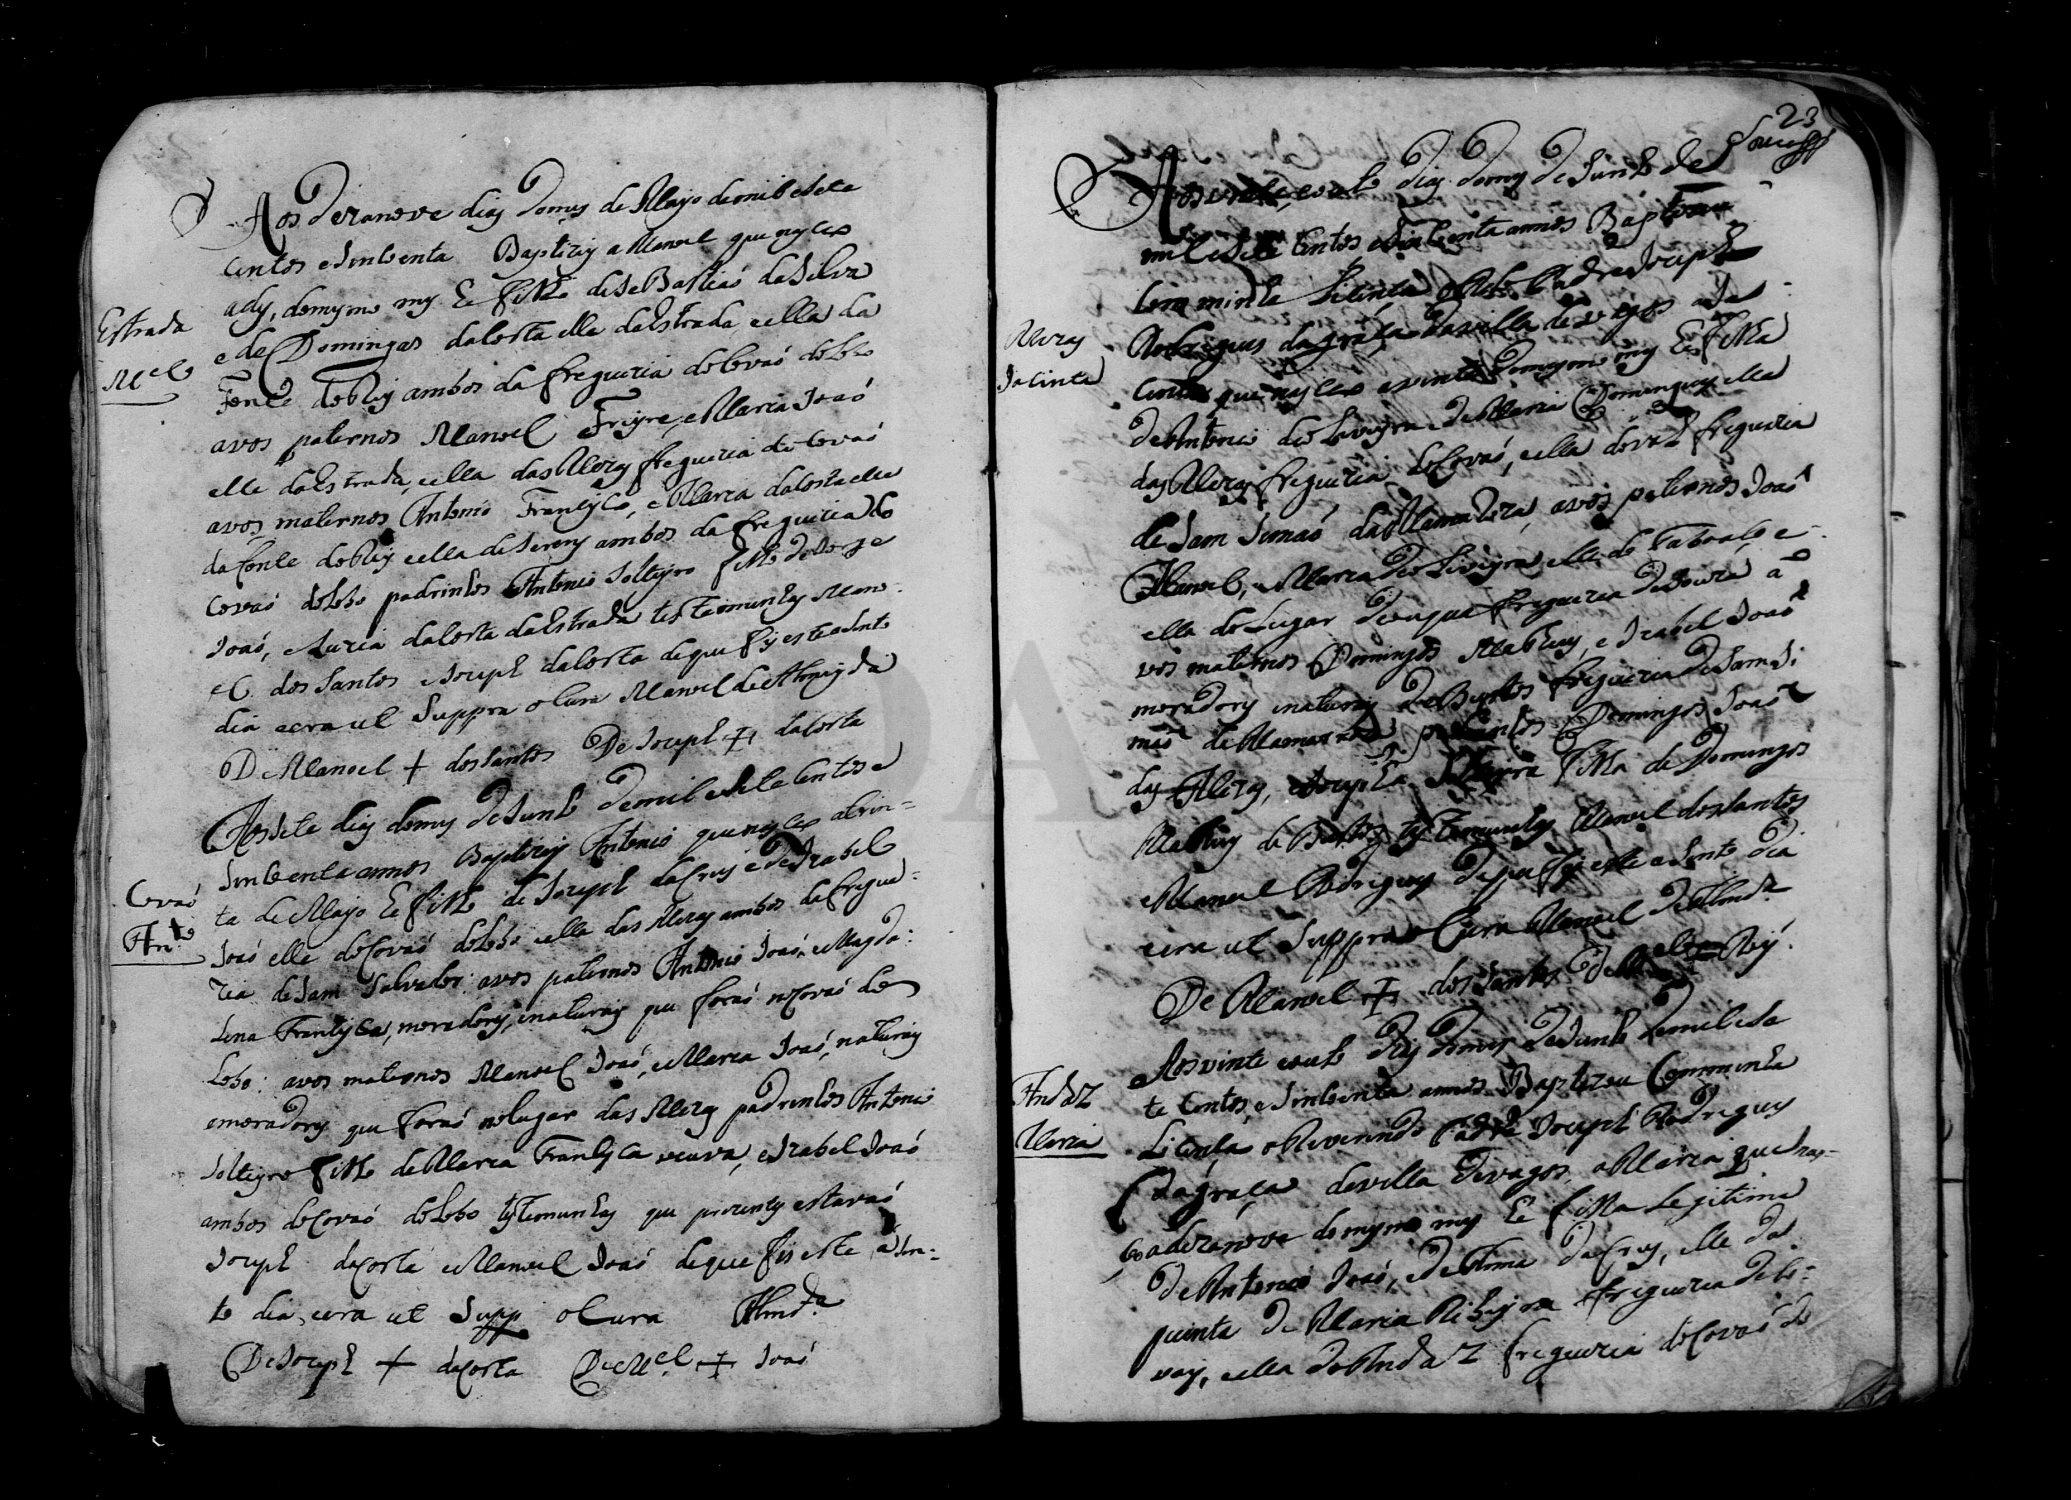 Aos deranove dias domes de Mayo demil esete
centos esincoenta Baptizey a Manoel que nasceo
a des domesmo mes he filho de Sebastiaõ da Silva
e de Domingas dacosta elle da Estrada, eella da
Fonte do Rey ambos da freguezia deCovaõ do Lobo
avos paternos Manoel Freyre, e Maria Joaõ
elle da Estrada, eella das Mezas freguezia de Covaõ
avos maternos Antonio Francisco, e Maria dacosta elle
da fonte do Rey eella de ambos da freguezia do
Covaõ do Lobo padrinhos Antonio Solteyro filho de
Joaõ, e Luzia dacosta da Estrada testemunhas Mano
el dos Santos e Joseph dacosta de que fis este asento
dia eera ut Suppra o Cura Manoel de Almeyda
De Manoel + dos Santos De Joseph + dacosta
Estrada
M.el
Aos sete dias domes de Junho demil esete centos e
sincoenta annos Baptizey Antonio que nasceo atrin=
ta de Mayo he filho de Joseph da Crus e de Izabel
Joaõ elle de Covaõ do Lobo eella das Mezas ambos da fregue=
zia de Sam Salvador: avos paternos Antonio Joaõ, e Magda:
lena Francisca, moradores, enaturais que foraõ no Covaõ do
Lobo: avos maternos Manoel Joaõ, e Maria Joaõ, naturais
emoradores que foraõ no lugar das Mezas padrinhos Antonio
Solteyro filho de Maria Francisca veuva, e Izabel Joaõ
ambos do Covaõ do Lobo testemunhas que prezentes estavaõ
Joseph dacosta e Manoel Joaõ de que fis este asen=
to dia, eera ut Supp o Cura Almd.ª
De Joseph + dacosta De M.el + Joaõ
Covaõ
Ant.º
23
Aos vinte, e oito dias domes de Junho de
mil esete centos, esincoenta annos Baptizou
com minha Licença o Rdo Padre Joseph
Rodrigues da graça da villa de Vagos a Ja
cinta que nasceo a vinte domesmo mes he filha
de Antonio de Oliveyra, e de Maria Domingues elle
das Mezas freguezia de Covaõ, eella do freguezia
de Sam Simaõ da Mamarroza, avos paternos Joaõ
Manoel, e Maria de Oliveyra elle do e
ella do Lugar freguezia de Soza a
vos maternos Domingos Matheus, e Izabel Joaõ
moradores enaturais de Bustos freguezia de Sam Si
maõ de Mamarroza padrinhos Domingos Joaõ
das Mezas, e Josepha Solteyra filha de Domingos
Matheus de Bustos testemunhas Manoel dos Santos
e Manoel Rodrigues de que fis este asento dia
eera ut Suppra o Cura Manoel de Almd.ª
De Manoel + dos Santos
Mezas
Jacinta
Aos vinte eoito dias domes de Junho demil ese
te centos, esincoenta annos Baptizou Comminha
Licença o Reverendo Padre Joseph Rodrigues
da graça davilla de vagos, a Maria que nas=
ceo aderanove domesmo mes he filha Legitima
de Antonio Joaõ, e de Anna da Crus, elle da
quinta de Maria Ribeyra freguezia de Co=
vaõ, eella do freguezia de Covaõ do
Maria